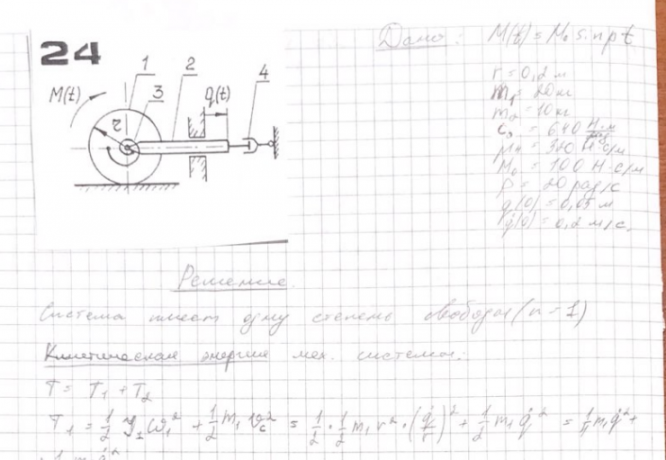 24
1 2 4
M(t) 3 q(t)
r
Дано: M(t) = M₀ sin pt
r = 0,2 м
m₁ = 20 кг
m₂ = 10 кг
c₃ = 640
= 320
M₀ = 100
p = 20 рад/с
q(0) = 0,05 м
q̇(0) = 0,2 м/с.
Решение
Система имеет одну степень свободы (n = 1)
Кинетическая энергия мех. системы:
T = T₁ + T₂
T₁ = 1/2 J₁ ω₁² + 1/2 m₁ v_c² = 1/2 · 1/2 m₁ r² · (q̇/r)² + 1/2 m₁ q̇² = 1/4 m₁ q̇² +